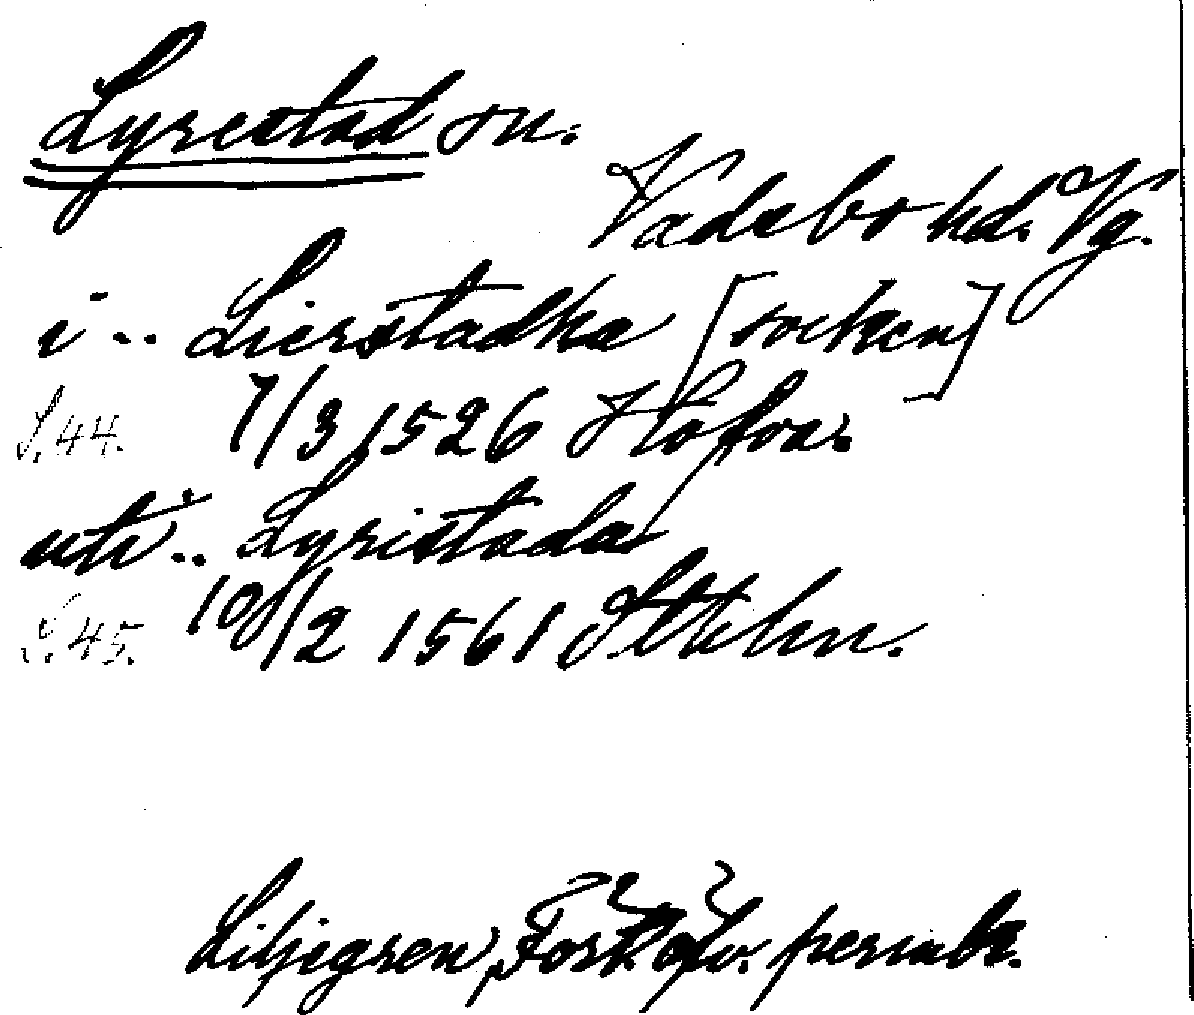 Lyrestad sn.
Vadsbo hd. Vg.
i .. Lierstadha [socken]
S. 44. 7/3 1526 Hofva.
uti .. Lyristada
S. 45. 10/2 1561 Sthlm.
Liljegren, Förk. öfv. permbr.